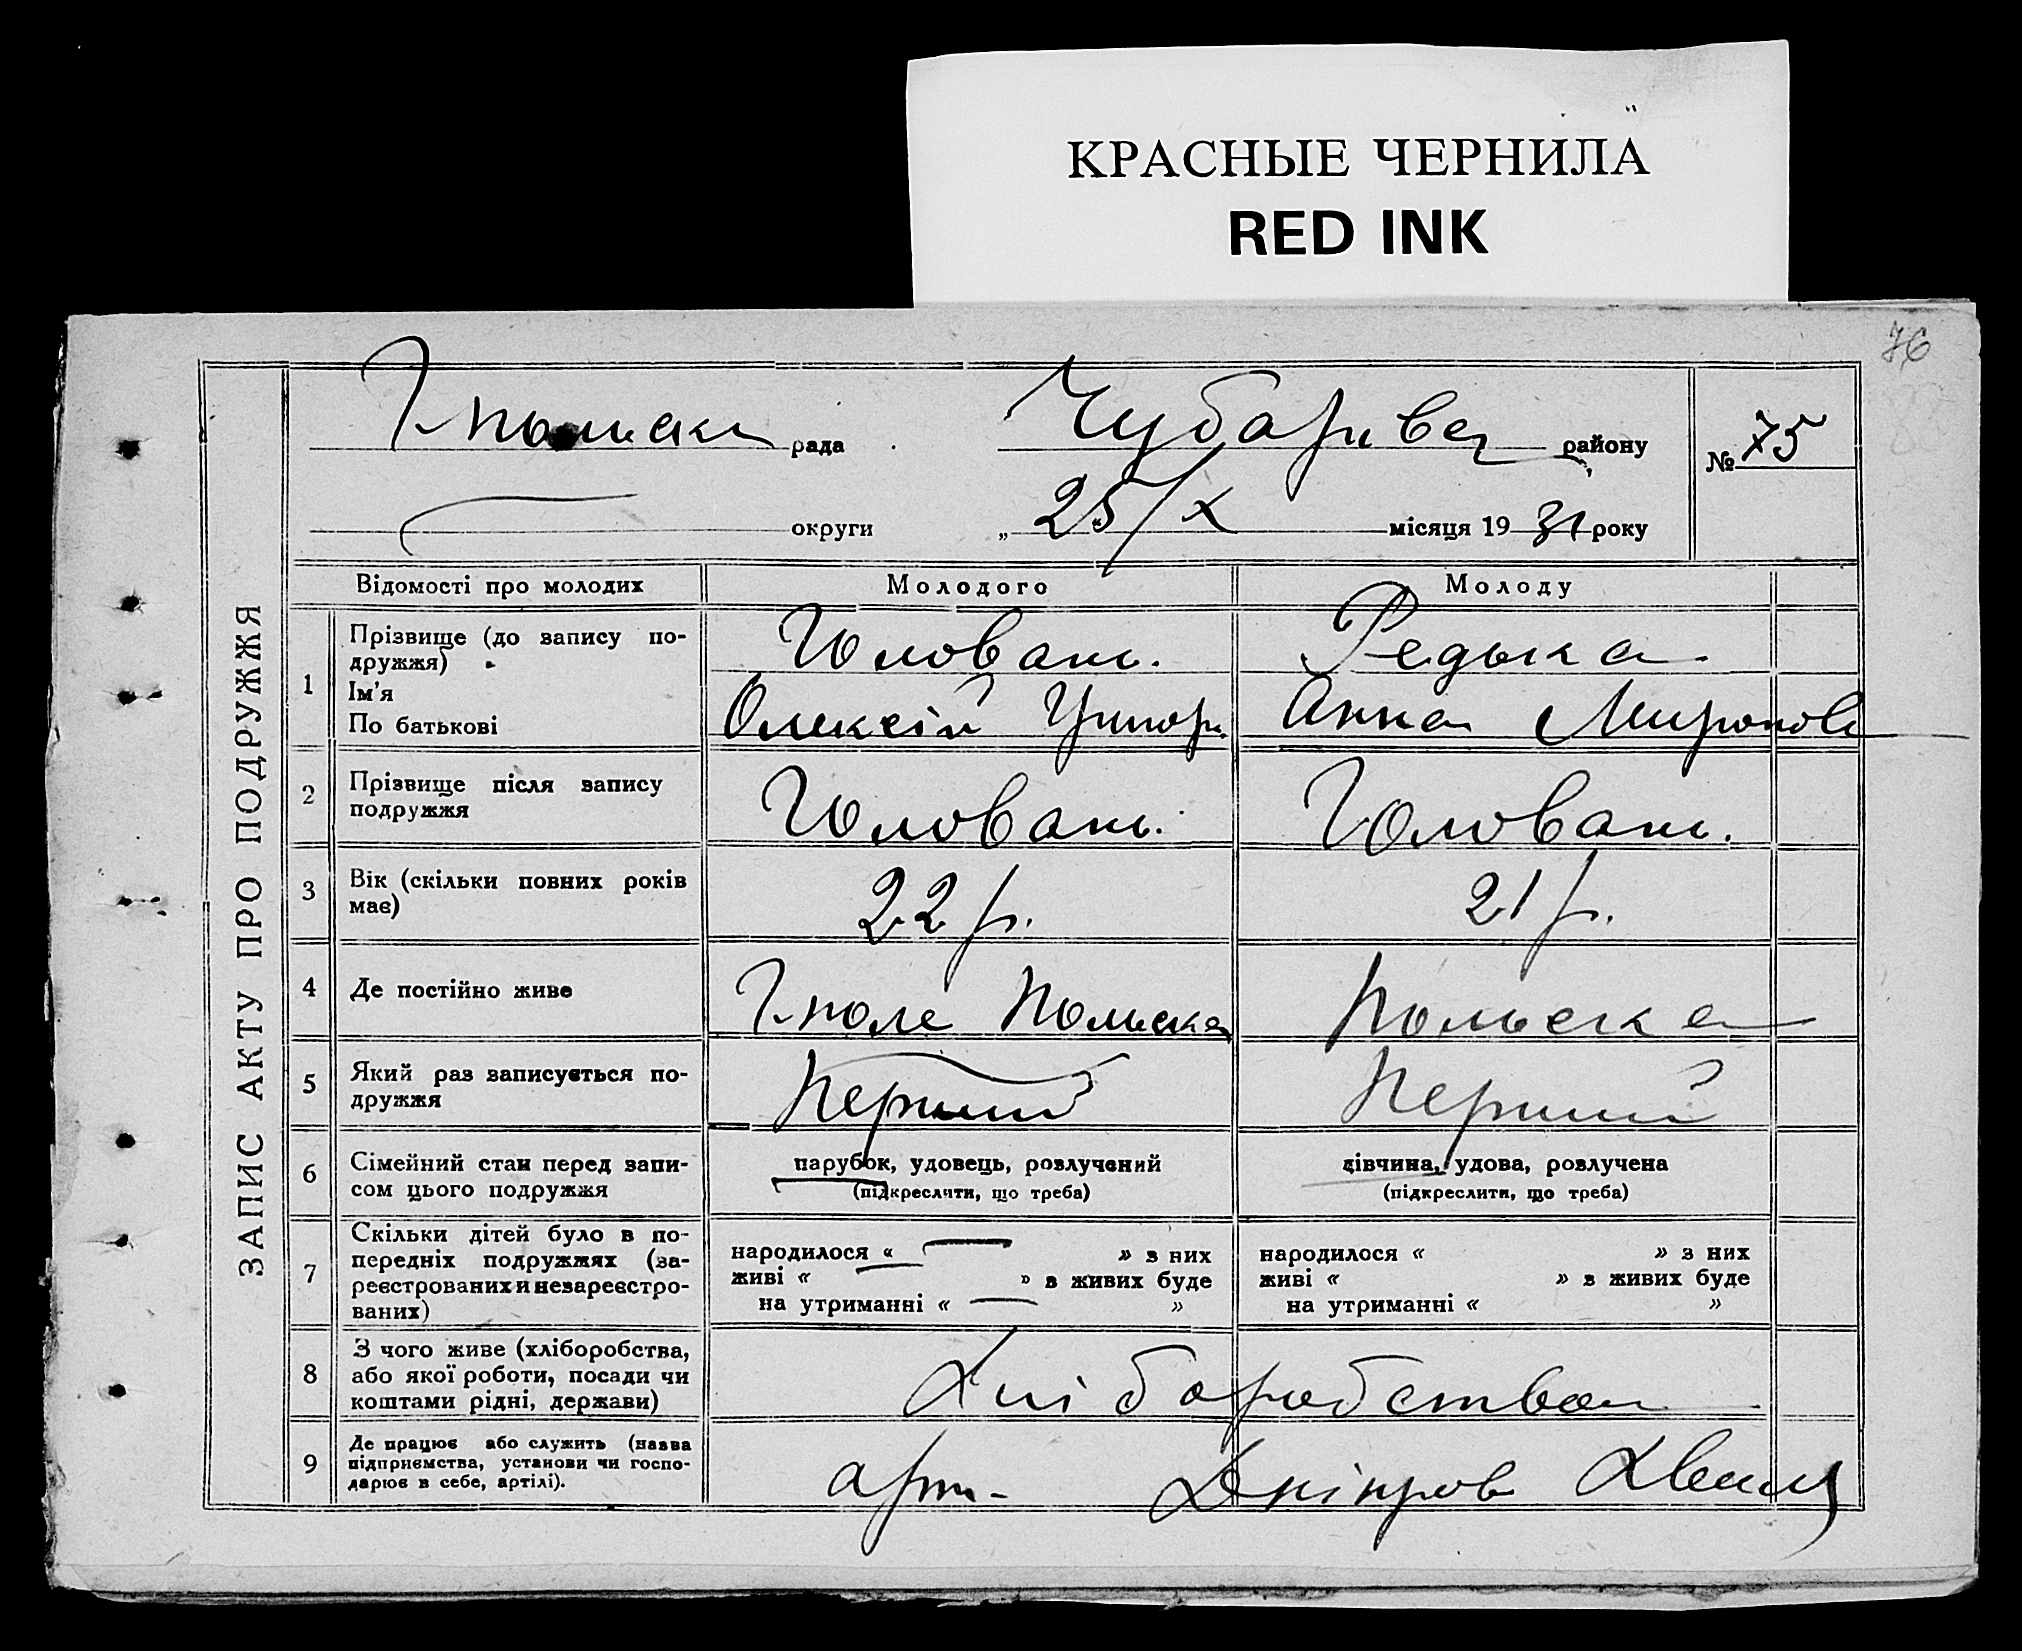 КРАСНЫЕ ЧЕРНИЛА
RED INK
76
Г.польська рада Чубарівськ району № 75
округи „ 25/X місяця 19 31 року
ЗАПИС АКТУ ПРО ПОДРУЖЖЯ
Відомості про молодих Молодого Молоду
1 Прізвище (до запису по-
дружжя)
Ім'я
По батькові
Головань. Редька
Олексій Григор. Анна Миронов
2 Прізвище після запису
подружжя
Головань. Головань.
3 Вік (скільки повних років
має)
22 р. 21 р.
4 Де постійно живе Г.поле Польська Польська
5 Який раз записується по-
дружжя
Перший Перший
6 Сімейний стан перед запи-
сом цього подружжя
парубок, удовець, розлучений
(підкреслити, що треба)
дівчина, удова, розлучена
(підкреслити, що треба)
7 Скільки дітей було в по-
передніх подружжях (за-
реєстрованих и незареєстро-
ваних)
народилося « — » з них
живі « — » з живих буде
на утриманні « — »
народилося « » з них
живі « » з живих буде
на утриманні « »
8 З чого живе (хліборобства,
або якої роботи, посади чи
коштами рідні, держави)
Хліборобства
9 Де працює або служить (назва
підприємства, установи чи госпо-
дарює в себе, артілі).
арт- Дніпров Хвиля